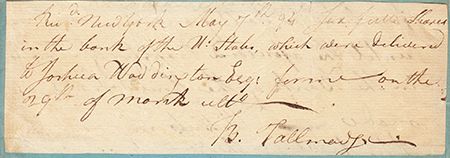 Rec.d New York May 7th 94 for fifty Shares
in the bank of the Ud. States, which were delivered
to Joshua Waddington Esqr. for me on the
29th of month ulto
B. Tallmadge